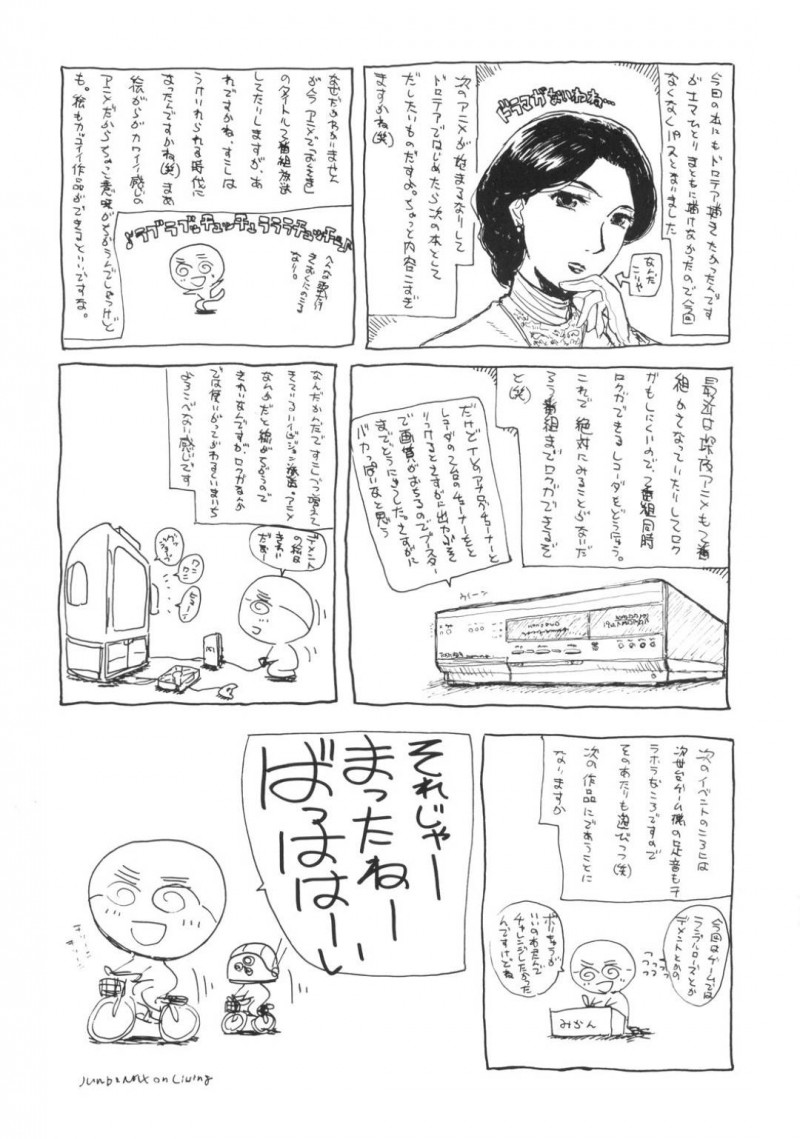 今回の本にもドロテア描きたかったんです
がエマひとりまともに描けなかったので今回
なくなくパスとなりました
次のアニメが始まるなりーして
ドロテアではじめたら次の本として
だしたいものだすよ。ちょっと内容こすぎ
ますかね(笑)
ドラマがあいわね…
なんだ
こりゃ
なぜだかわかりません
が今アニメで「おくさま」
のタイトルで番組放送
してたりしますが、あ
れですかね、すこしは
うけいれられる時代に
なったんですかね(笑)まあ
絵がらがカワイイ感じの
アニメだからちょっと意味がちがうんでしょうけど
も。絵もカッコイイ作品ができるといいですな。
♪ラブラブッチュッチュラララチュッチュッ♪
へんな歌だけ
きおくにのこる
なり。
最近は深夜アニメもって番
組かさなっていたりしてロク
がもしにくいので、2番組同時
ロクができるレコーダをどうにゅう。
これで絶対にみることがないだ
ろう番組までロクができるぞ
と(笑)
だけど1つのアナログチューナーと
レコーダの2台のチューナーをと
りつけるとさすがに出力不足
で画質がおちるのでブースター
までどうにゅうした。さすがに
バカっぽいなと思う
ウイーン
なんだかんだですこしづつ増えて
きているハイビジョン放送。アニメ
なんかだと線がでるので
きれいなんですが、ロクがなんか
では使いがってがわるくいまいち
よろこべない感じです
デメント
の絵は
きれい
だなー
ワン
ワン
次のイベントのころには
次世代ゲーム機の足音もチ
ラホラなころですので
そのあたりも遊びつつ(笑)
次の作品にであうことに
なりますか
今回はゲームでは
ランブルローズとか
デメントとかの
ボリュウムが
いいのあったんで
チャレンジしたかった
んですけどね
みかん
それじゃー
まったねー
ばっははーい